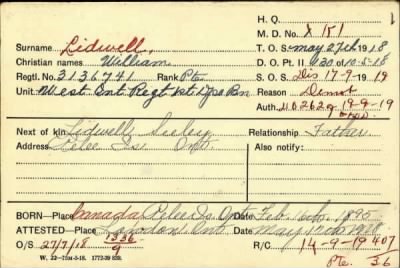 H. Q.
M. D. No. X R 1
Surname Lidwell, T. O. S. may 27th 1918
Christian names William D. O. Pt. II 130 of 10-5-18
Regtl. No. 3136741 Rank Pte. S. O. S. Dis 17-9-1919
Unit West Ont Regt 1st Dpo Bn Reason Demob
Auth. 18-9-19
Next of kin Lidwell Seeley Relationship Father
Address Pelee Is. Ont. Also notify:
BORN—Place Canada Pelee Is Ont Date Feb. 6th, 1895
ATTESTED—Place London Ont Date May 1918
O/S 27/7/18 1336/9 R/C 14-9-19 407
W. 22—75M-5-18. 1772-39 829. Pte. 36